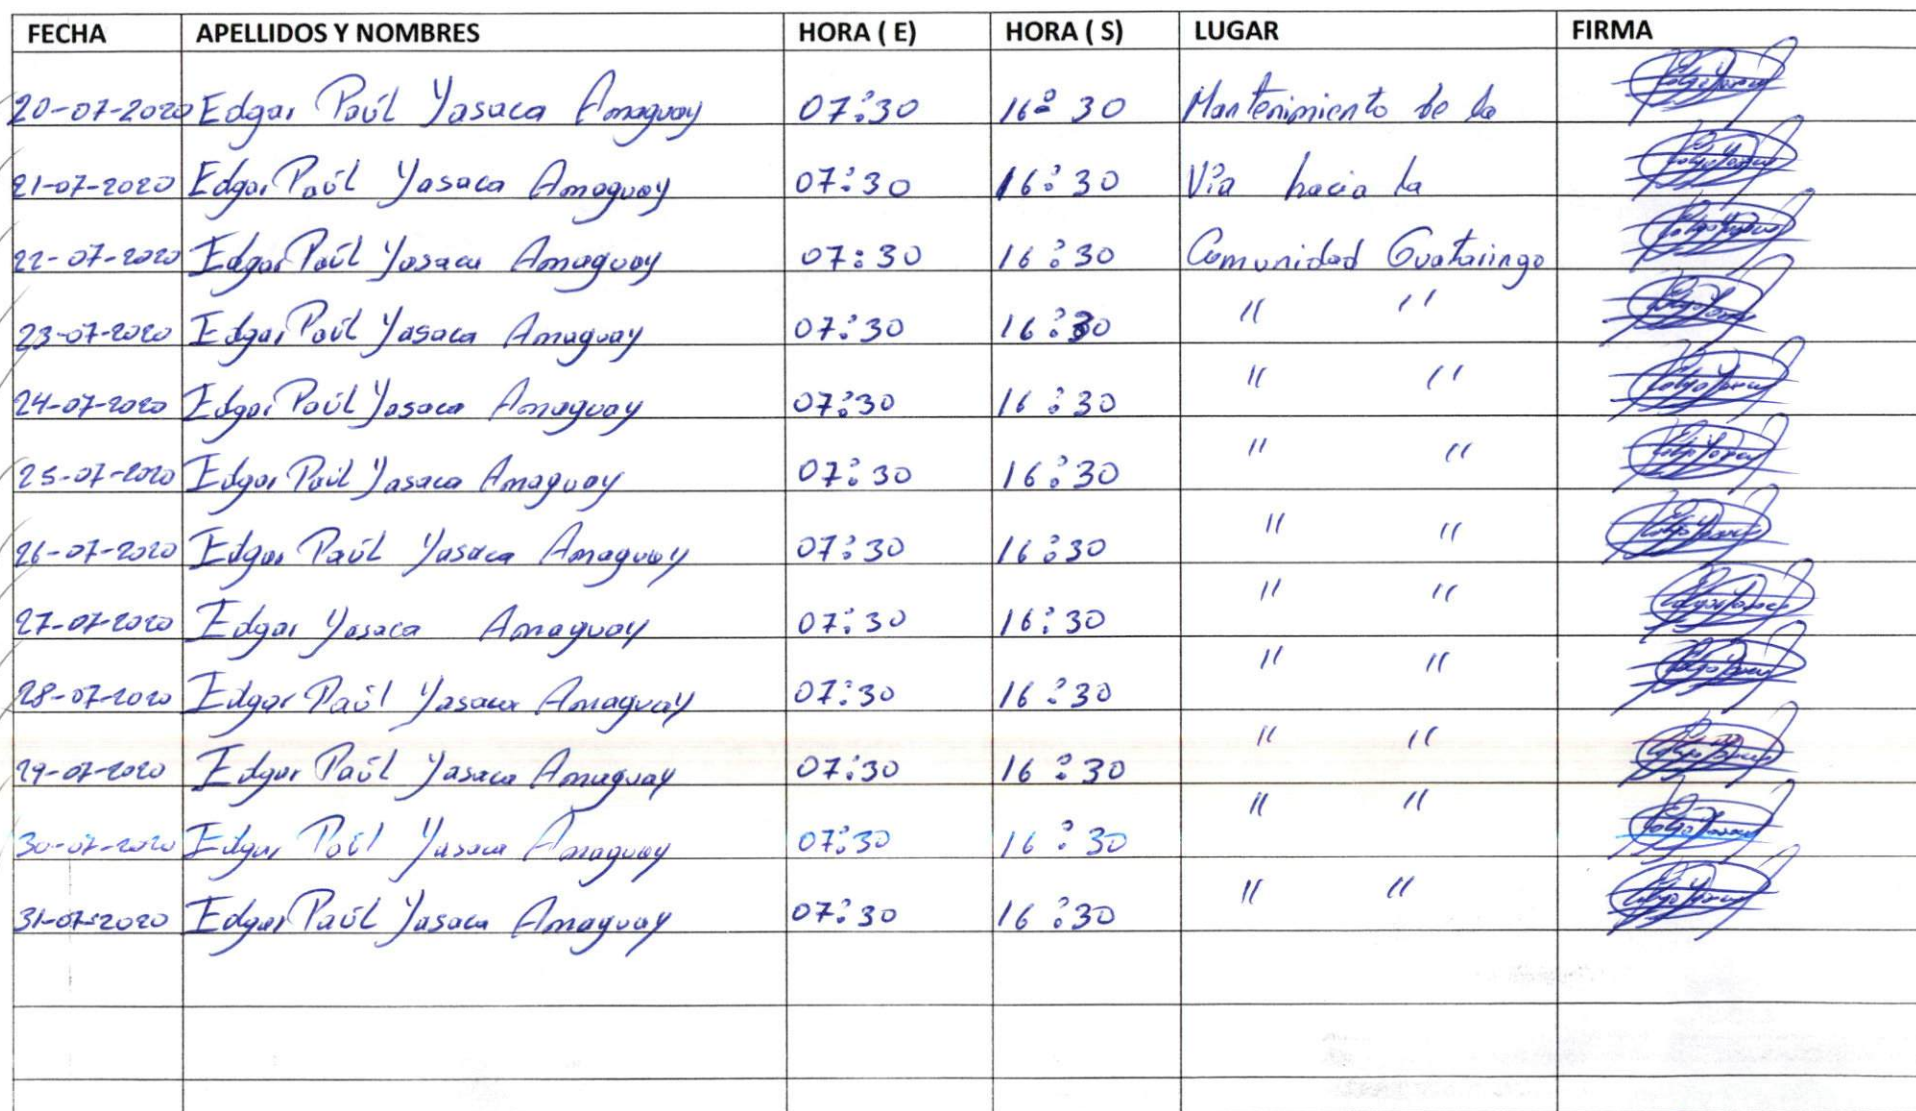 FECHA APELLIDOS Y NOMBRES HORA ( E) HORA ( S) LUGAR FIRMA
20-07-2020 Edgar Paúl Yasaca Amaguay 07:30 16:30 Mantenimiento de la
21-07-2020 Edgar Paúl Yasaca Amaguay 07:30 16:30 Vía hacia la
22-07-2020 Edgar Paúl Yasaca Amaguay 07:30 16:30 Comunidad Guataringo
23-07-2020 Edgar Paúl Yasaca Amaguay 07:30 16:30 " "
24-07-2020 Edgar Paúl Yasaca Amaguay 07:30 16:30 " "
25-07-2020 Edgar Paúl Yasaca Amaguay 07:30 16:30 " "
26-07-2020 Edgar Paúl Yasaca Amaguay 07:30 16:30 " "
27-07-2020 Edgar Yasaca Amaguay 07:30 16:30 " "
28-07-2020 Edgar Paúl Yasaca Amaguay 07:30 16:30 " "
29-07-2020 Edgar Paúl Yasaca Amaguay 07:30 16:30 " "
30-07-2020 Edgar Paúl Yasaca Amaguay 07:30 16:30 " "
31-07-2020 Edgar Paúl Yasaca Amaguay 07:30 16:30 " "